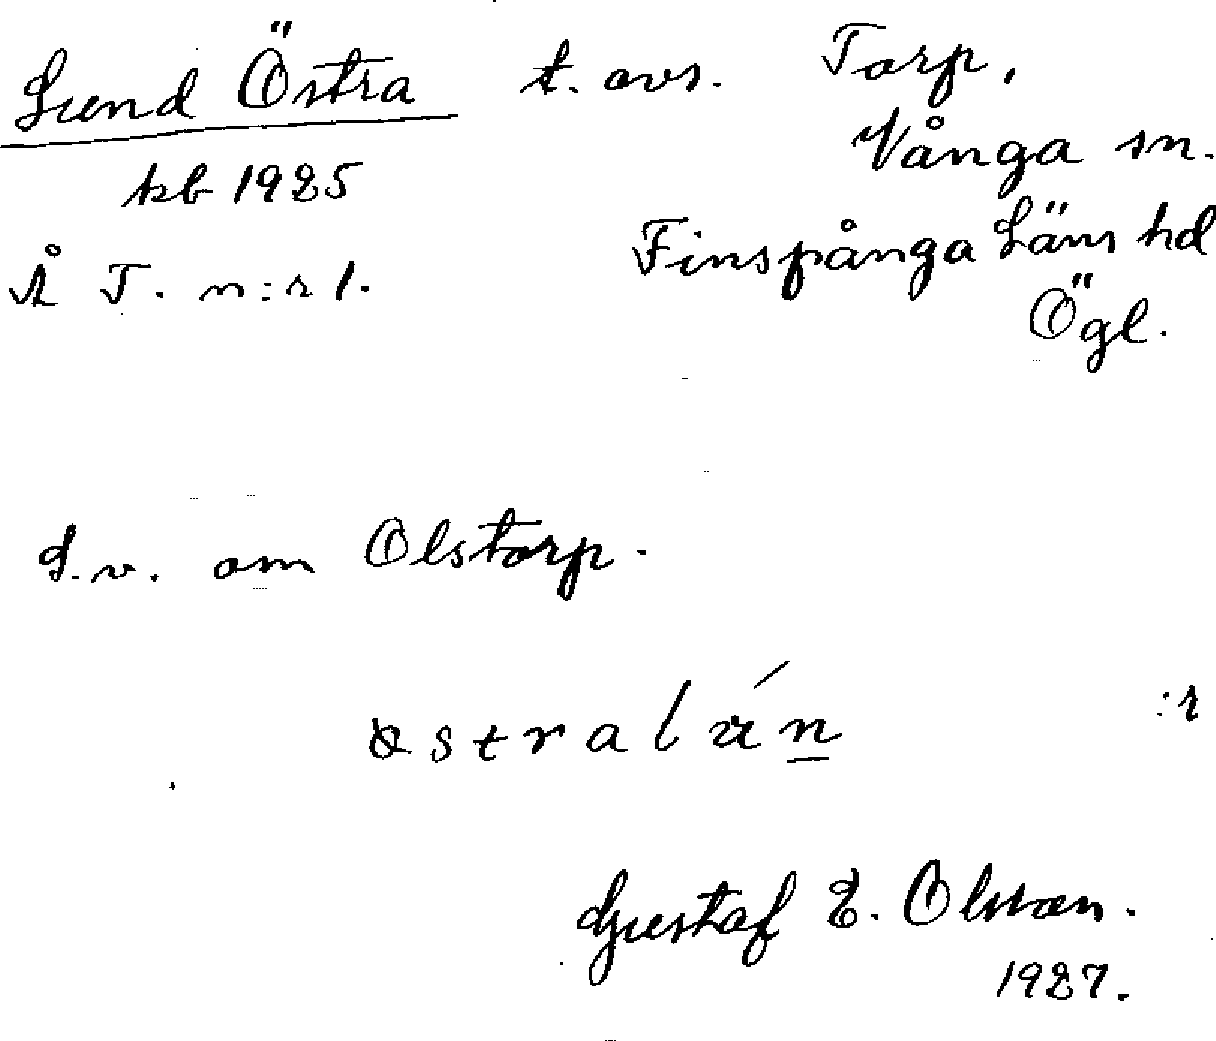 Lund Östra t. avs. Torp,
Vånga sn.
kb 1925
Finspånga Läns hd
Å T. n:r 1.
Ögl.
S.v. om Olstorp.
stral n :r
Gustaf E. Olsson.
1927.